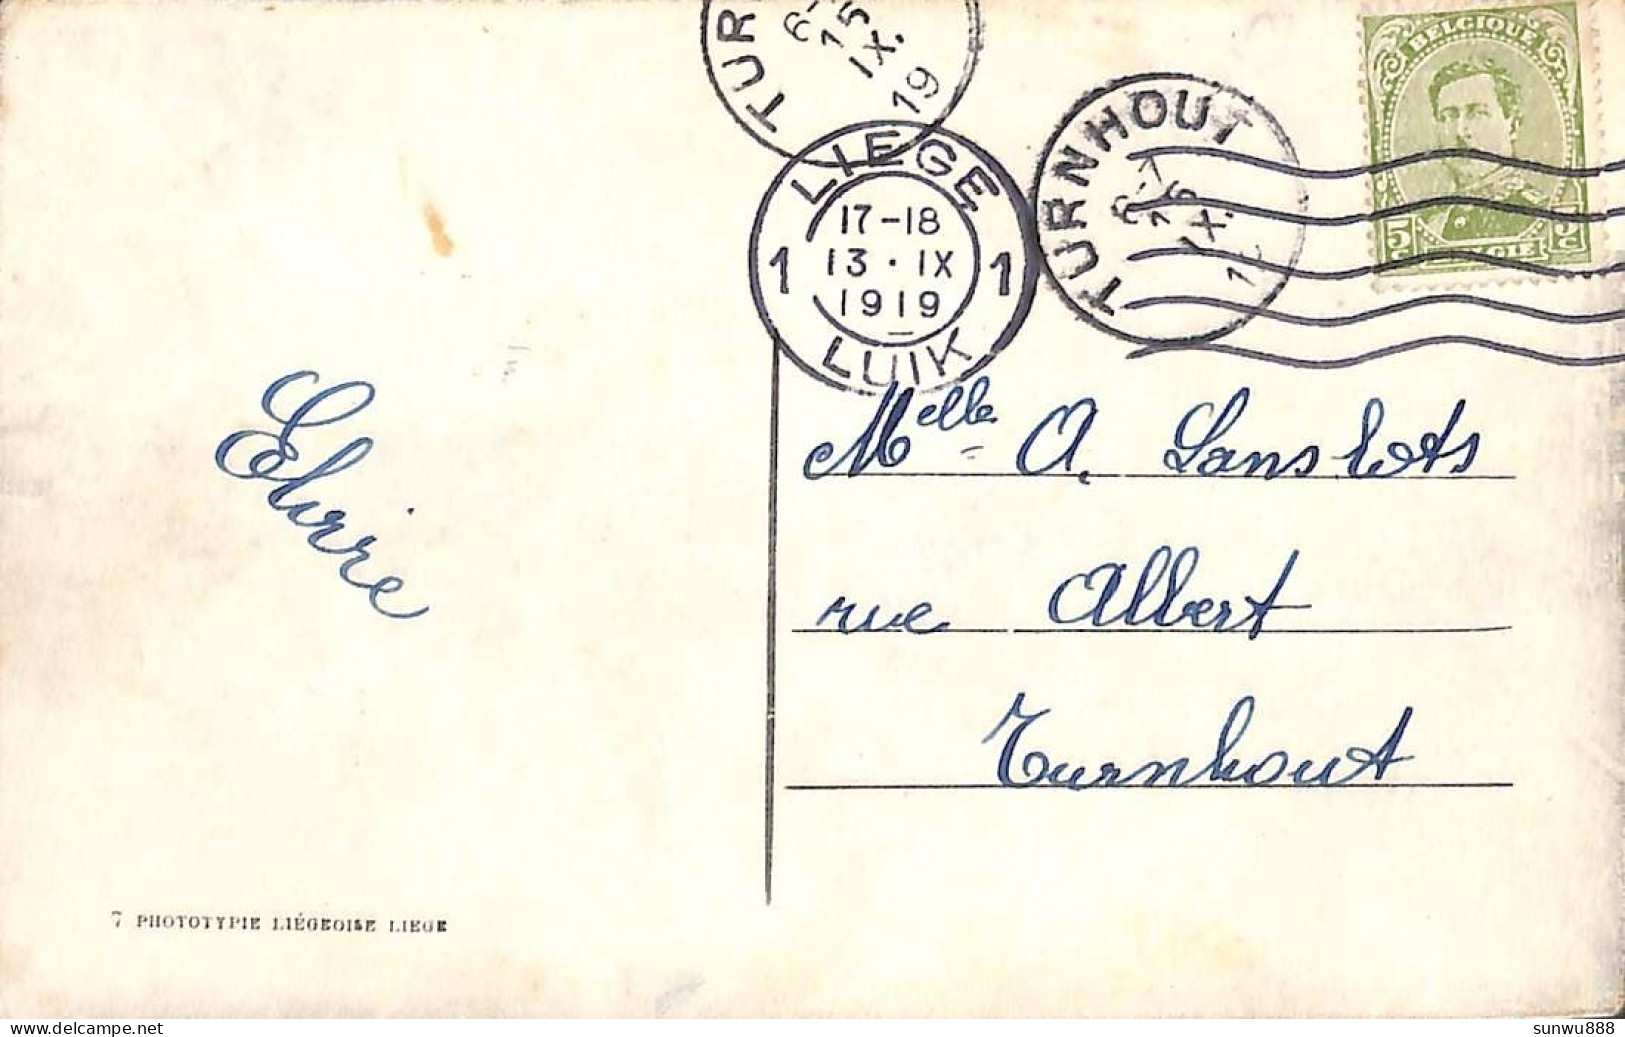 TUR
6-
15
IX.
19
LIEGE
17-18
1 13 · IX 1
1919
LUIK
TURNHOUT
6-7
16
IX.
BELGIQUE
5c 5c
BELGIË
Elvire
Melle A. Lanslots
rue Albert
Turnhout
7 PHOTOTYPIE LIÉGEOISE LIEGE
sunwu888